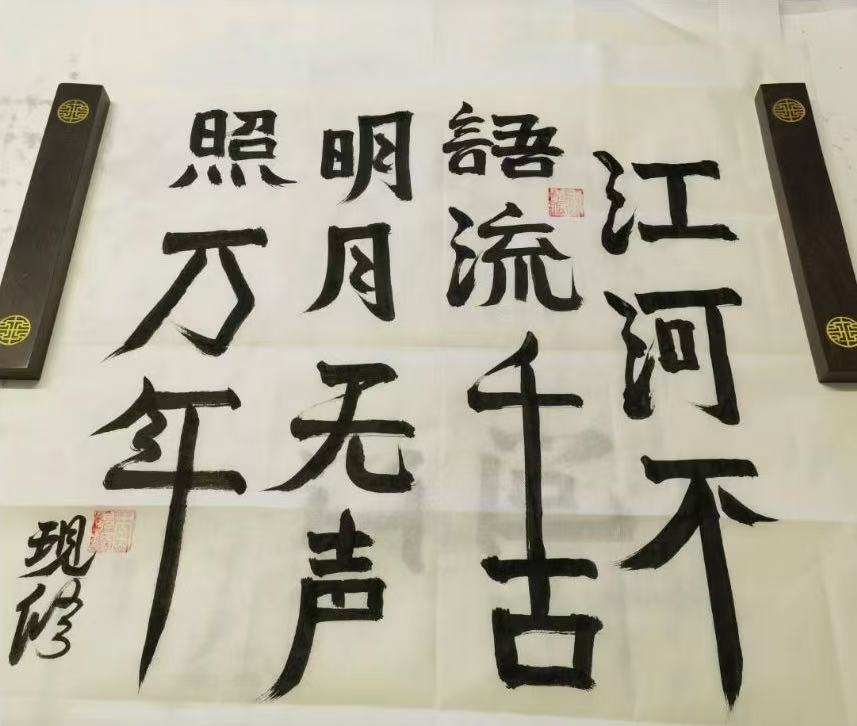 江河不
語流千古
明月无声
照万年
现修